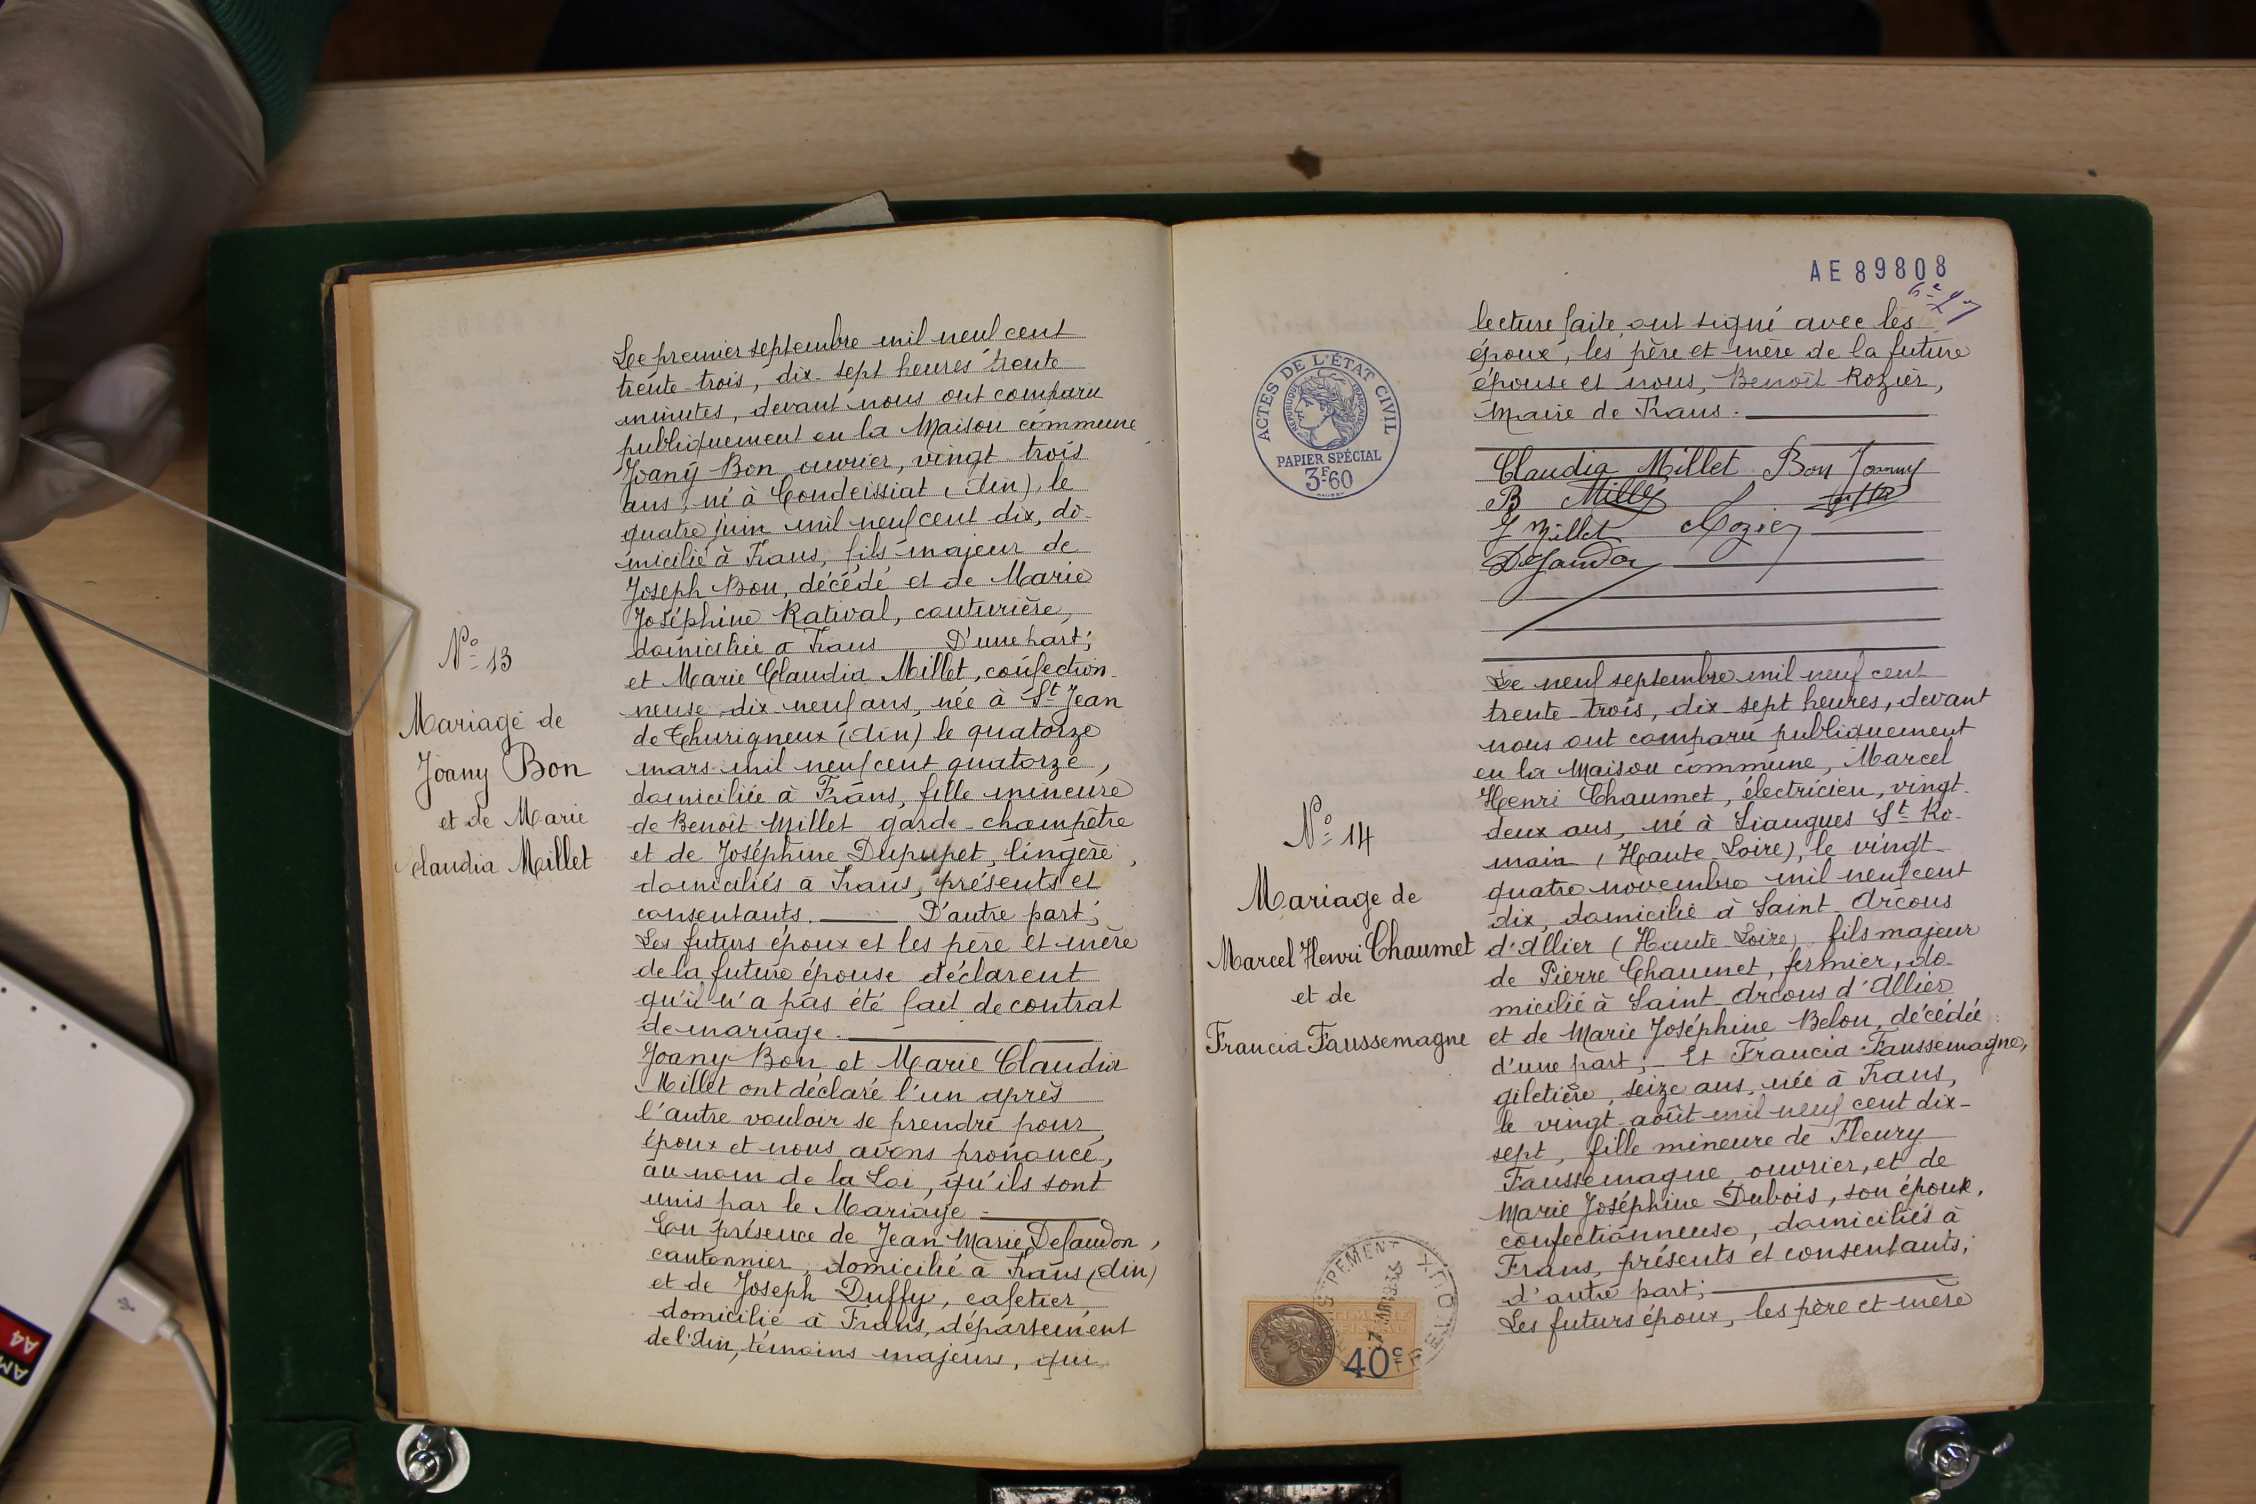 Le premier septembre mil neuf cent
trente-trois, dix-sept heures trente
minutes, devant nous ont comparu
publiquement en la Maison commune
Joany Bon ouvrier, vingt-trois
ans, né à Condeissiat (Ain), le
quatre juin mil neuf cent dix, do-
micilié à Frans, fils majeur de
Joseph Bon, décédé et de Marie
Joséphine Ratival, couturière,
domiciliée à Frans D'une part;
et Marie Claudia Millet, confection-
neuse dix-neuf ans, née à St Jean
de Thurigneux (Ain) le quatorze
mars mil neuf cent quatorze,
domiciliée à Frans, fille mineure
de Benoît Millet garde-champêtre
et de Joséphine Dupupet, lingère,
domiciliés à Frans, présents et
consentants. D'autre part;
Les futurs époux et les père et mère
de la future épouse déclarent
qu'il n'a pas été fait de contrat
de mariage.
Joany Bon et Marie Claudia
Millet ont déclaré l'un après
l'autre vouloir se prendre pour
époux et nous avons prononcé,
au nom de la Loi, qu'ils sont
unis par le Mariage.
En présence de Jean Marie Dejaudon,
cantonnier, domicilié à Frans (Ain)
et de Joseph Duffy, cafetier,
domicilié à Frans, département
de l'Ain, témoins majeurs, qui
N° 13
Mariage de
Joany Bon
et de Marie
Claudia Millet
AE 89808
lecture faite, ont signé avec les
époux, les père et mère de la future
épouse et nous, Benoît Rozier,
Maire de Frans.
ACTES DE L'ÉTAT CIVIL
RÉPUBLIQUE FRANÇAISE
PAPIER SPÉCIAL
3F60
Claudia Millet Bon Joanny
B Millet
J Millet Rozier
Dejaudon
Le neuf septembre mil neuf cent
trente-trois, dix-sept heures, devant
nous ont comparu publiquement
en la Maison commune, Marcel
Henri Chaumet, électricien, vingt-
deux ans, né à Siaugues St Ro-
main (Haute Loire), le vingt-
quatre novembre mil neuf cent
dix, domicilié à Saint Arcons
d'Allier (Haute-Loire) fils majeur
de Pierre Chaumet, fermier, do-
micilié à Saint Arcons d'Allier
et de Marie Joséphine Belon, décédée
d'une part; Et Francia Faussemagne,
giletière, seize ans, née à Frans,
le vingt août mil neuf cent dix-
sept, fille mineure de Fleury
Faussemagne, ouvrier, et de
Marie Joséphine Dubois, son épouse,
confectionneuse, domiciliés à
Frans, présents et consentants,
d'autre part;
Les futurs époux, les père et mère
N° 14
Mariage de
Marcel Henri Chaumet
et de
Francia Faussemagne
40c
A4